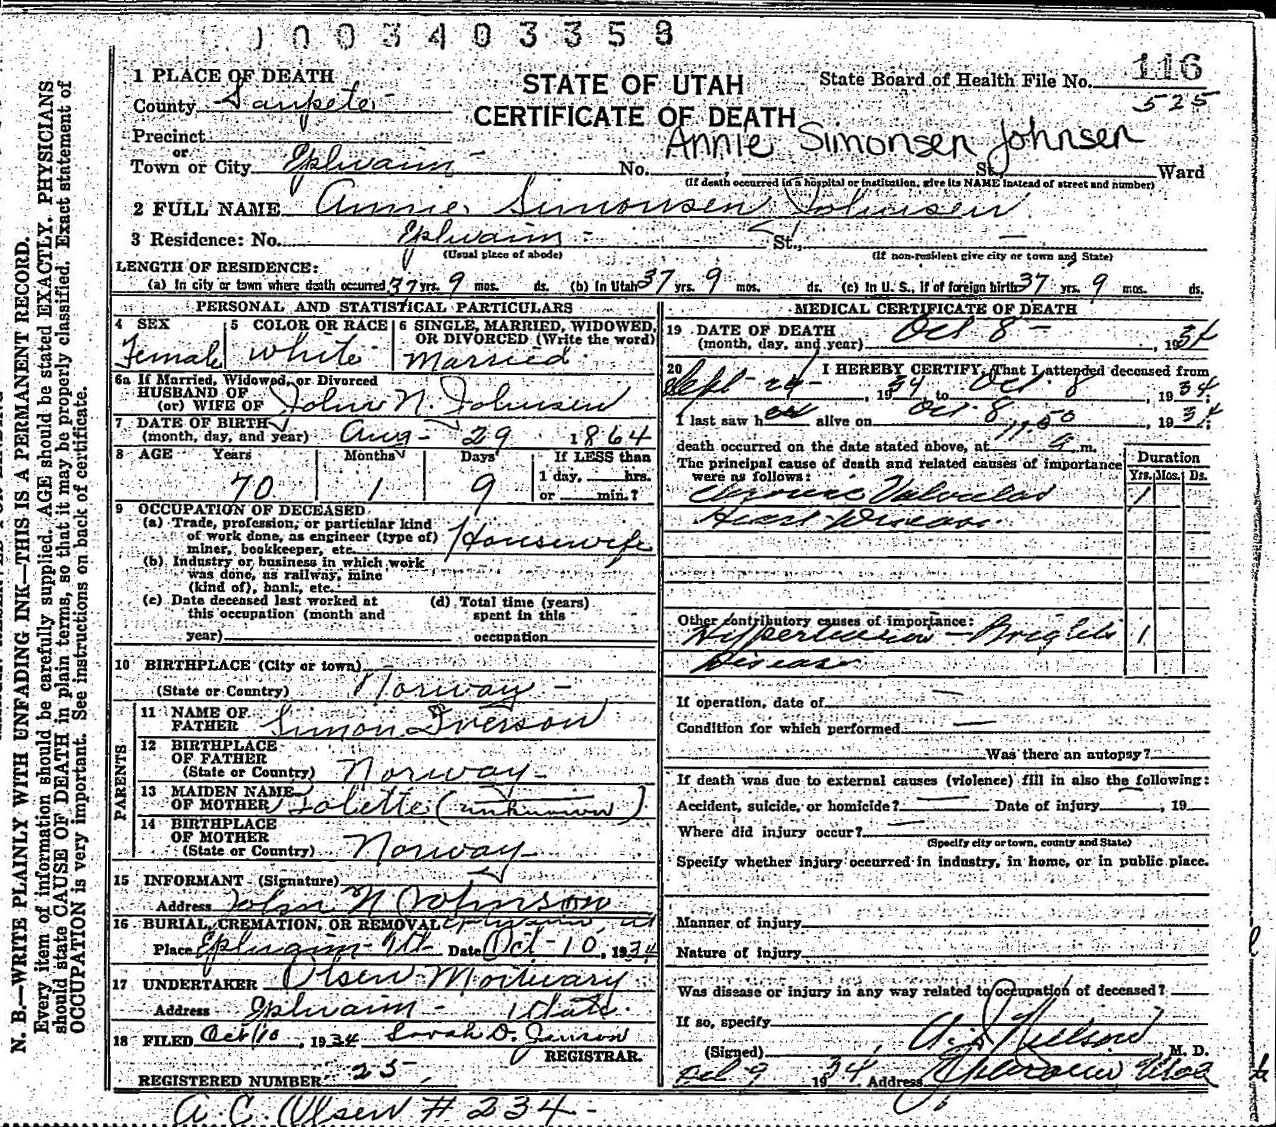 1003403358
116
525
STATE OF UTAH
CERTIFICATE OF DEATH
State Board of Health File No.
1 PLACE OF DEATH
County Sanpete
Precinct
or
Town or City Ephraim No. St. Ward
Annie Simonsen Johnsen
(If death occurred in a hospital or institution, give its NAME instead of street and number)
2 FULL NAME Annie Simonsen Johnsen
3 Residence: No. Ephraim St.,
(Usual place of abode) (If non-resident give city or town and State)
LENGTH OF RESIDENCE:
(a) In city or town where death occurred 37 yrs. 9 mos. ds. (b) In Utah 37 yrs. 9 mos. ds. (c) In U. S., if of foreign birth 37 yrs. 9 mos. ds.
PERSONAL AND STATISTICAL PARTICULARS
4 SEX
Female
5 COLOR OR RACE
White
6 SINGLE, MARRIED, WIDOWED,
OR DIVORCED (Write the word)
Married
6a If Married, Widowed, or Divorced
HUSBAND OF
(or) WIFE OF John N. Johnsen
7 DATE OF BIRTH
(month, day, and year) Aug - 29 1864
8 AGE Years Months Days If LESS than
1 day, hrs.
or min.?
70 1 9
9 OCCUPATION OF DECEASED
(a) Trade, profession, or particular kind
of work done, as engineer (type of)
miner, bookkeeper, etc. Housewife
(b) Industry or business in which work
was done, as railway, mine
(kind of), bank, etc.
(c) Date deceased last worked at
this occupation (month and
year)
(d) Total time (years)
spent in this
occupation
10 BIRTHPLACE (City or town)
(State or Country) Norway -
PARENTS
11 NAME OF
FATHER Simon Iverson
12 BIRTHPLACE
OF FATHER
(State or Country) Norway -
13 MAIDEN NAME
OF MOTHER Joliette (unknown)
14 BIRTHPLACE
OF MOTHER
(State or Country) Norway -
15 INFORMANT (Signature)
Address John N Johnson
16 BURIAL, CREMATION, OR REMOVAL
Place Ephraim - Ut. Date Oct - 10, 1934
17 UNDERTAKER Olsen Mortuary
Address Ephraim - Utah.
18 FILED Oct 10, 1934 Sarah D. Jenson
REGISTRAR.
REGISTERED NUMBER 25
A. C. Olsen # 234 -
MEDICAL CERTIFICATE OF DEATH
19 DATE OF DEATH
(month, day, and year) Oct 8 - , 1934
20 I HEREBY CERTIFY, That I attended deceased from
Sept - 24 - , 1934 to Oct. 8, 1934;
I last saw her alive on Oct. 8, 1934;
death occurred on the date stated above, at 11.50 a m.
The principal cause of death and related causes of importance
were as follows:
Duration
Yrs. Mos. Ds.
Chronic Valvular 1
Heart Disease.
Other contributory causes of importance:
Hypertension - Brights 1
Disease
If operation, date of
Condition for which performed
Was there an autopsy?
If death was due to external causes (violence) fill in also the following:
Accident, suicide, or homicide? Date of injury , 19
Where did injury occur?
(Specify city or town, county and State)
Specify whether injury occurred in industry, in home, or in public place.
Manner of injury
Nature of injury
Was disease or injury in any way related to occupation of deceased?
If so, specify
(Signed) A. J. Nielson M. D.
Oct 9 1934 Address Ephraim Utah
N. B.—WRITE PLAINLY WITH UNFADING INK—THIS IS A PERMANENT RECORD.
Every item of information should be carefully supplied. AGE should be stated EXACTLY. PHYSICIANS
should state CAUSE OF DEATH in plain terms, so that it may be properly classified. Exact statement of
OCCUPATION is very important. See instructions on back of certificate.